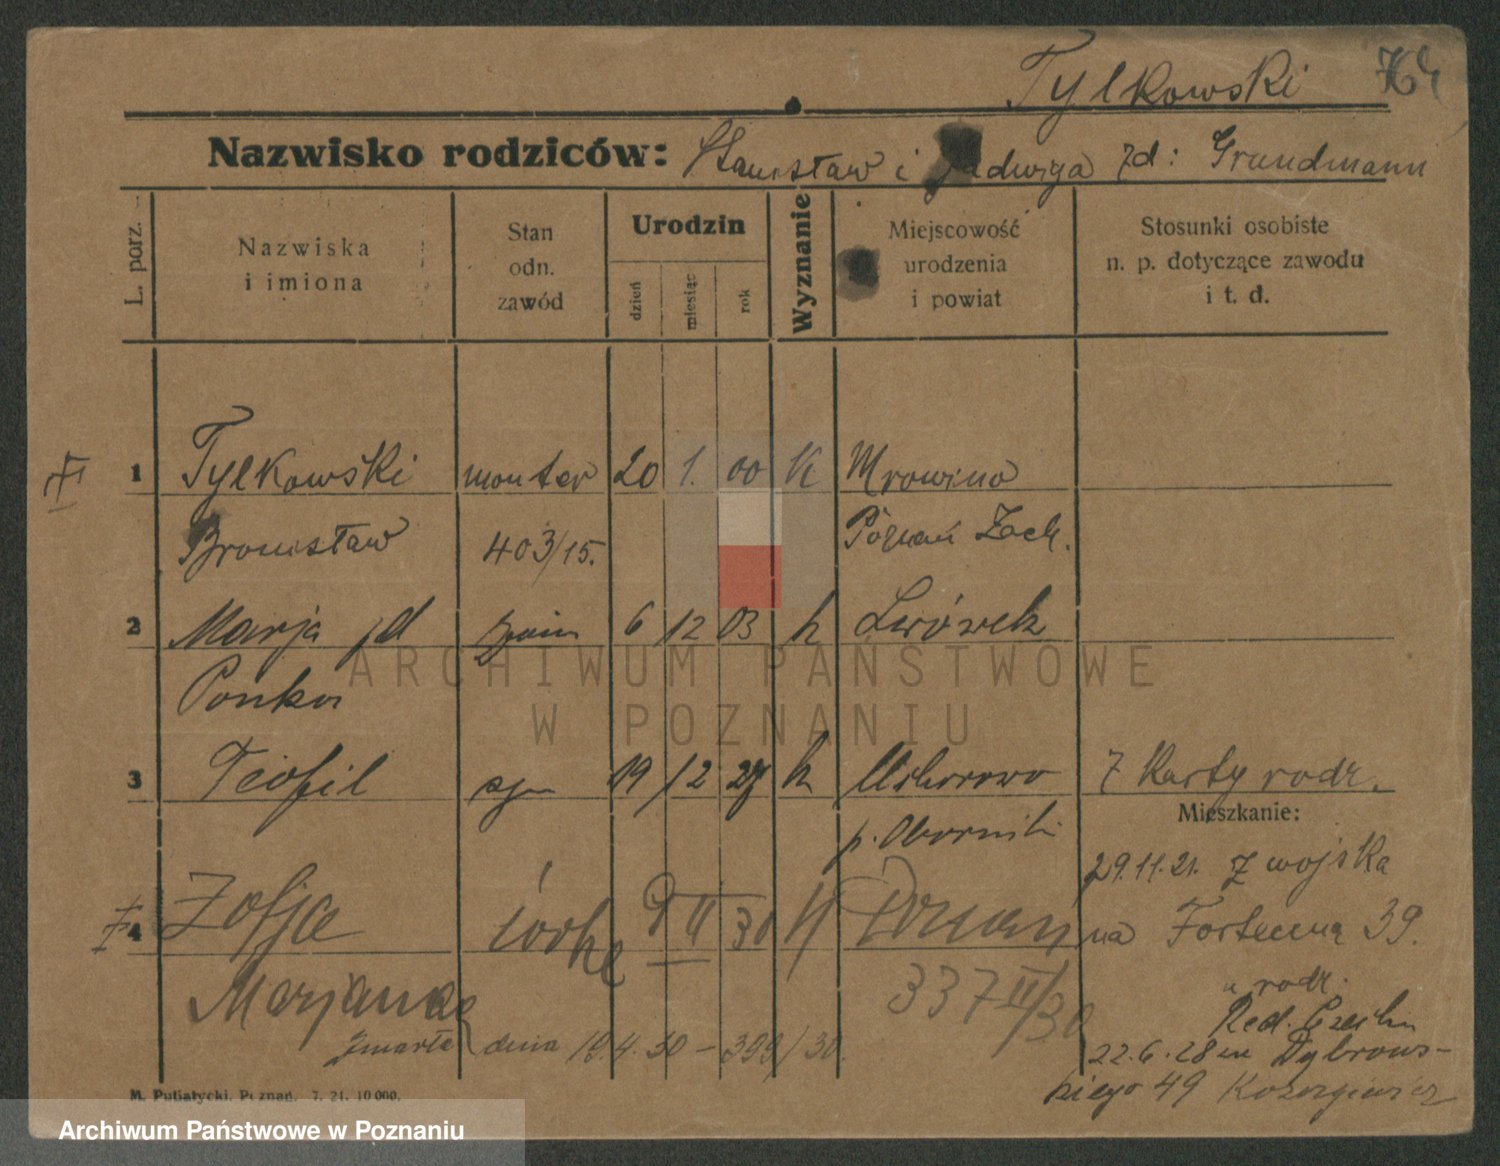 Tylkowski 764
Nazwisko rodziców: Stanisław i Jadwiga zd: Grundmann
L. porz.
Nazwiska i imiona
Stan odn. zawód
Urodzin
dzień
miesiąc
rok
Wyznanie
Miejscowość urodzenia i powiat
Stosunki osobiste n. p. dotyczące zawodu i t. d.
1 Tylkowski monter 20 1. 00 K Mrowino
Bronisław 403/15. Poznań Zach.
2 Marja zd 6 12 03 k Lwówek
Ponka
ARCHIWUM PAŃSTWOWE
W POZNANIU
3 Teofil syn 19 12 27 k 7 Karty rodz.
Mieszkanie:
p. Oborniki
29.11.21. z wojska
4 Zofja córka 9 II 30 K Poznań na Forteczną 39.
Marjanna 337 II/30 u rodz.
zmarła dnia 19.4.30 - 399/30.
22.6.28 na Dąbrows-
kiego 49
M. Putiatycki, Poznań. 7. 21. 10 000.
Archiwum Państwowe w Poznaniu